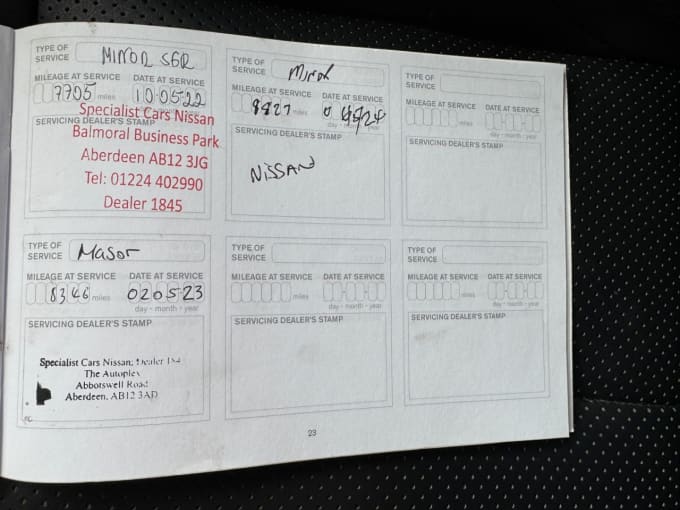 TYPE OF SERVICE Minor SER
MILEAGE AT SERVICE DATE AT SERVICE
7705 miles 10 05 22
SERVICING DEALER'S STAMP
Specialist Cars Nissan
Balmoral Business Park
Aberdeen AB12 3JG
Tel: 01224 402990
Dealer 1845
TYPE OF SERVICE Minor
MILEAGE AT SERVICE DATE AT SERVICE
miles day - month - year
SERVICING DEALER'S STAMP
NISSAN
TYPE OF SERVICE
MILEAGE AT SERVICE DATE AT SERVICE
miles day - month - year
SERVICING DEALER'S STAMP
TYPE OF SERVICE Masor
MILEAGE AT SERVICE DATE AT SERVICE
8346 miles 02 05 23
day - month - year
SERVICING DEALER'S STAMP
Specialist Cars Nissan, Dealer
The Autoplex
Abbotswell Road
Aberdeen, AB12 3AD
TYPE OF SERVICE
MILEAGE AT SERVICE DATE AT SERVICE
miles day - month - year
SERVICING DEALER'S STAMP
TYPE OF SERVICE
MILEAGE AT SERVICE DATE AT SERVICE
miles day - month - year
SERVICING DEALER'S STAMP
23